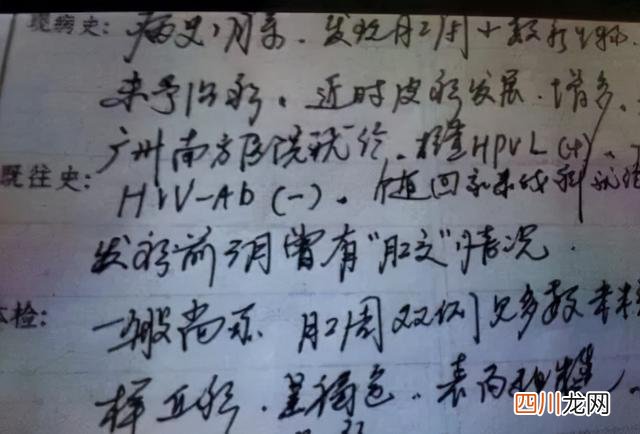 现病史: 病史2月余. 发现肛周十数新生物.
未予治疗. 近时皮疹发展. 增多.
广州南方医院就诊. 检查HPVL(+).
既往史: HIV-Ab(-). 回家来我科就诊
发疹前3月曾有"肛交"情况.
体检: 一般尚可. 肛周双侧见多数米粒
样丘疹. 呈褐色. 表面粗糙.
四川龙网